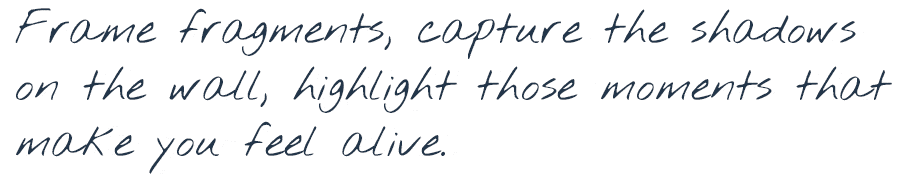 Frame fragments, capture the shadows
on the wall, highlight those moments that
make you feel alive.